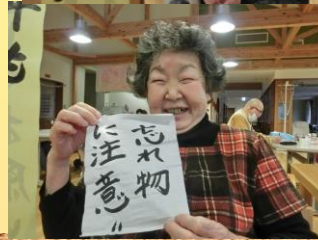 忘れ物
に注意!!